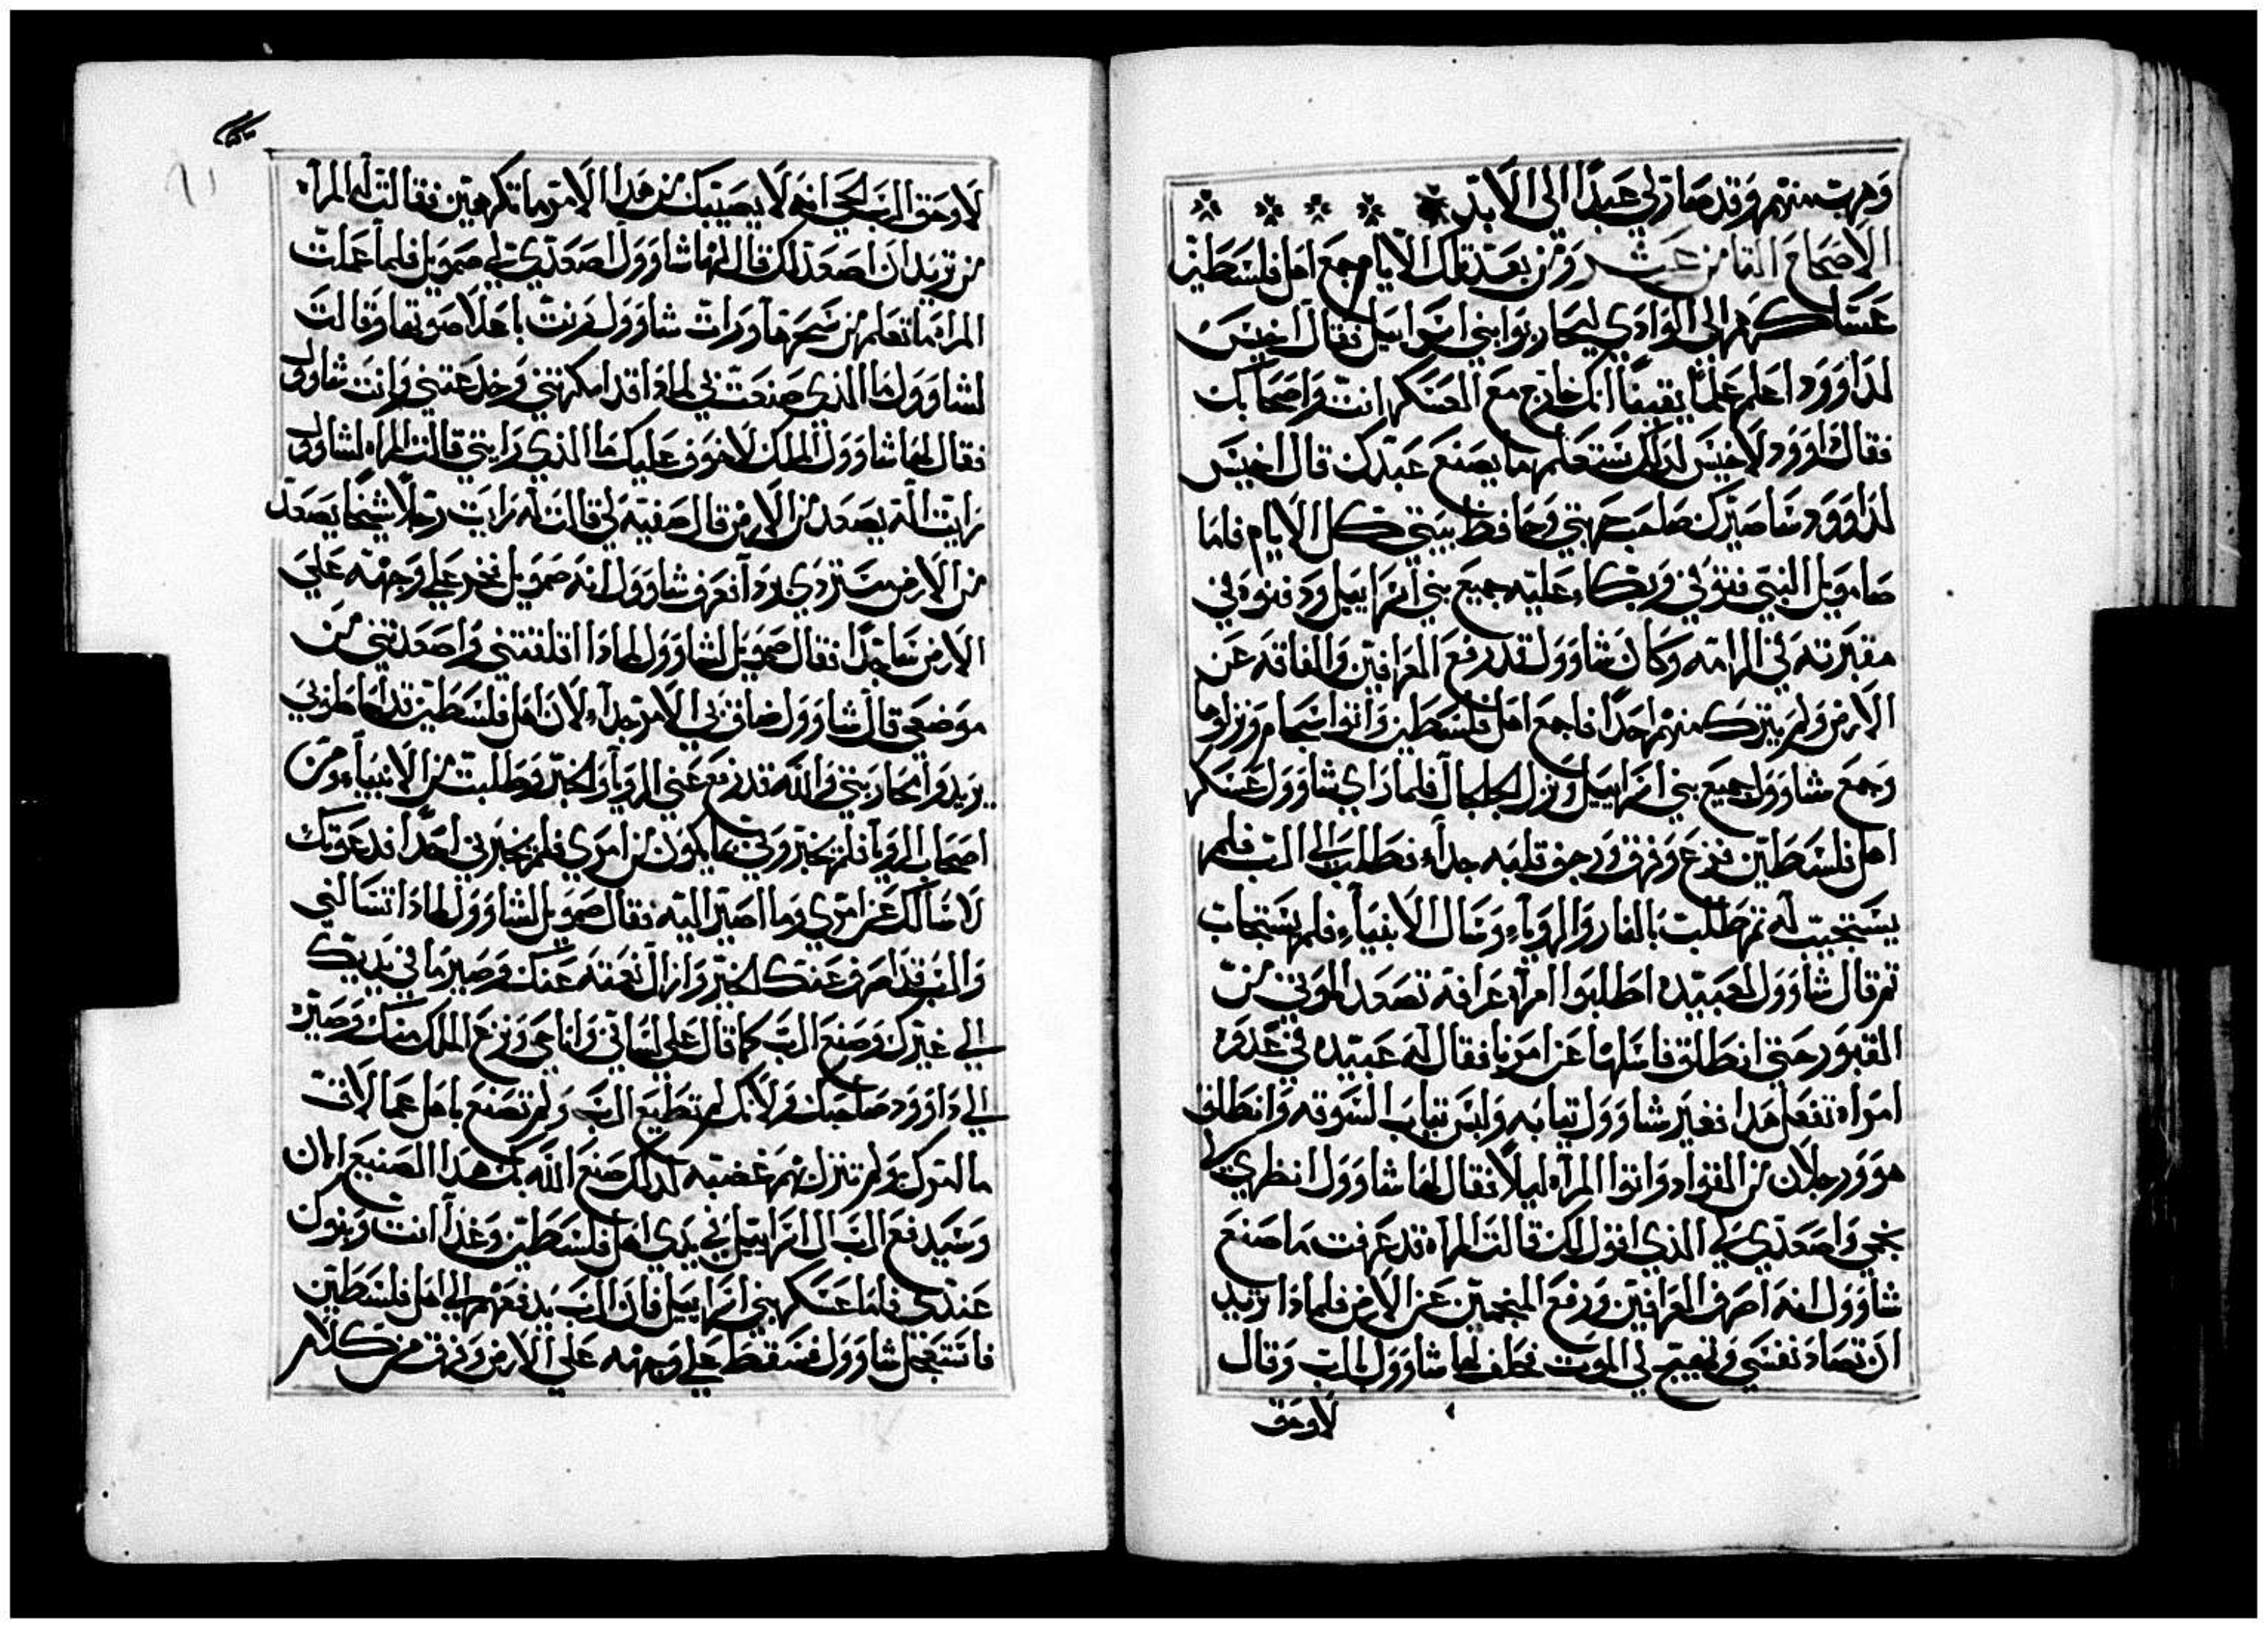 وهربت منهم وقد صار لي عبدًا الى الابد
الاصحاح الثامن عشر ومن بعد تلك الايام جمع اهل فلسطين
عساكرهم الى الوادي ليحاربوا بني اسراييل فقال اخيس
لداوود اعلم علمًا يقينًا انك خارج مع العسكر انت واصحابك
فقال داوود لاخيس لذلك ستعلم ما يصنع عبدك قال اخيس
لداوود ساصيرك صاحب حربتي وحافظ بيتي كل الايام فاما
صامويل النبي فتوفي وبكاء عليه جميع بني اسراييل ودفنوه في
مقبرته في الرامه وكان شاوول قد رفع العرافين والفاقه عن
الارض ولم يترك منهم احدًا فاجمع اهل فلسطين واتوا سجام ونزلوها
وجمع شاوول جميع بني اسراييل ونزل الجلجال فلما راي شاوول عسكر
اهل فلسطين فزع وفرق ورجف قلبه جداء فطلب الى الرب فلم
يستجيب له ثم طلبت بالنار والروياء وسال الانبياء فلم يستجاب
ثم قال شاوول لعبيده اطلبوا امراه عرافه تصعد الموتي من
القبور حتى انطلق فاسلها عن امرنا فقال له عبيده في عدور
امراه تفعل هذا فغير شاوول ثيابه ولبس ثياب السوقه وانطلق
هو ورجلان من القواد واتوا المراه ليلاً فقال لها شاوول انظري لي
بنجمي واصعدي لي الذي اقول لك قالت المراه قد عرفت ما صنع
شاوول انه اصرف العرافين ورفع المنجمين عن الارض فلماذا تريد
ان تصاد نفسي وتهيج لي الموت فحلف لها شاوول بالرب وقال
لا وحق
لا وحق الرب الحي انه لا يصيبك من هذا الامر ما تكرهين فقالت له المراه
من تريد ان اصعد لك قال لها شاوول اصعدي لي صمويل فلما عملت
المراه ما تعلم من سحرها ورات شاوول فرنت باعلا صوتها وقالت
لشاوول ما الذي صنعت بي لماذا قد امكرتني وخدعتني وانت شاوول
فقال لها شاوول الملك لا خوف عليك ما الذي رايتي قالت المراه لشاوول
رايت الهً يصعد من الارض قال صفيه لي قالت له رايت رجلاً شيخًا يصعد
من الارض متردي بردآ فعرف شاوول انه صمويل فخر على وجهه علي
الارض ساجدًا فقال صمويل لشاوول لماذا اقلقتني واصعدتني من
موضعي قال شاوول ضاق بي الامر جداء لان اهل فلسطين قد احاطو بي
يريدوا محاربتي والله قد رفع عني الرويا والخبر وطلبت من الانبياء ومن
اصحاب الرويا فلم يخبروني ما يكون من امري فلم يخبرني احدًا فدعوتك
لاسالك عن امري وما اصير اليه فقال صمويل لشاوول لماذا تسالني
والرب قد اصرف عنك الخبر وازال نعمته عنك وصير ما في يديك
الي غيرك وصنع الرب كما قال على لساني وانا حي ونزع الملك منك وصيره
الي داوود صاحبك ولانك لم تطيع الرب ولم تصنع باهل عمالاق
ما امرك ولم تنزل بهم غضبه لذلك صنع الله بك هذا الصنيع الان
وسيدفع الرب ال اسراييل في يدي اهل فلسطين وغدآ انت وبنوك
عندي فاما عسكر بني اسراييل فان الرب يدفعهم الي اهل فلسطين
فاستعجل شاوول فسقط علي وجهه علي الارض وفرق من كلام